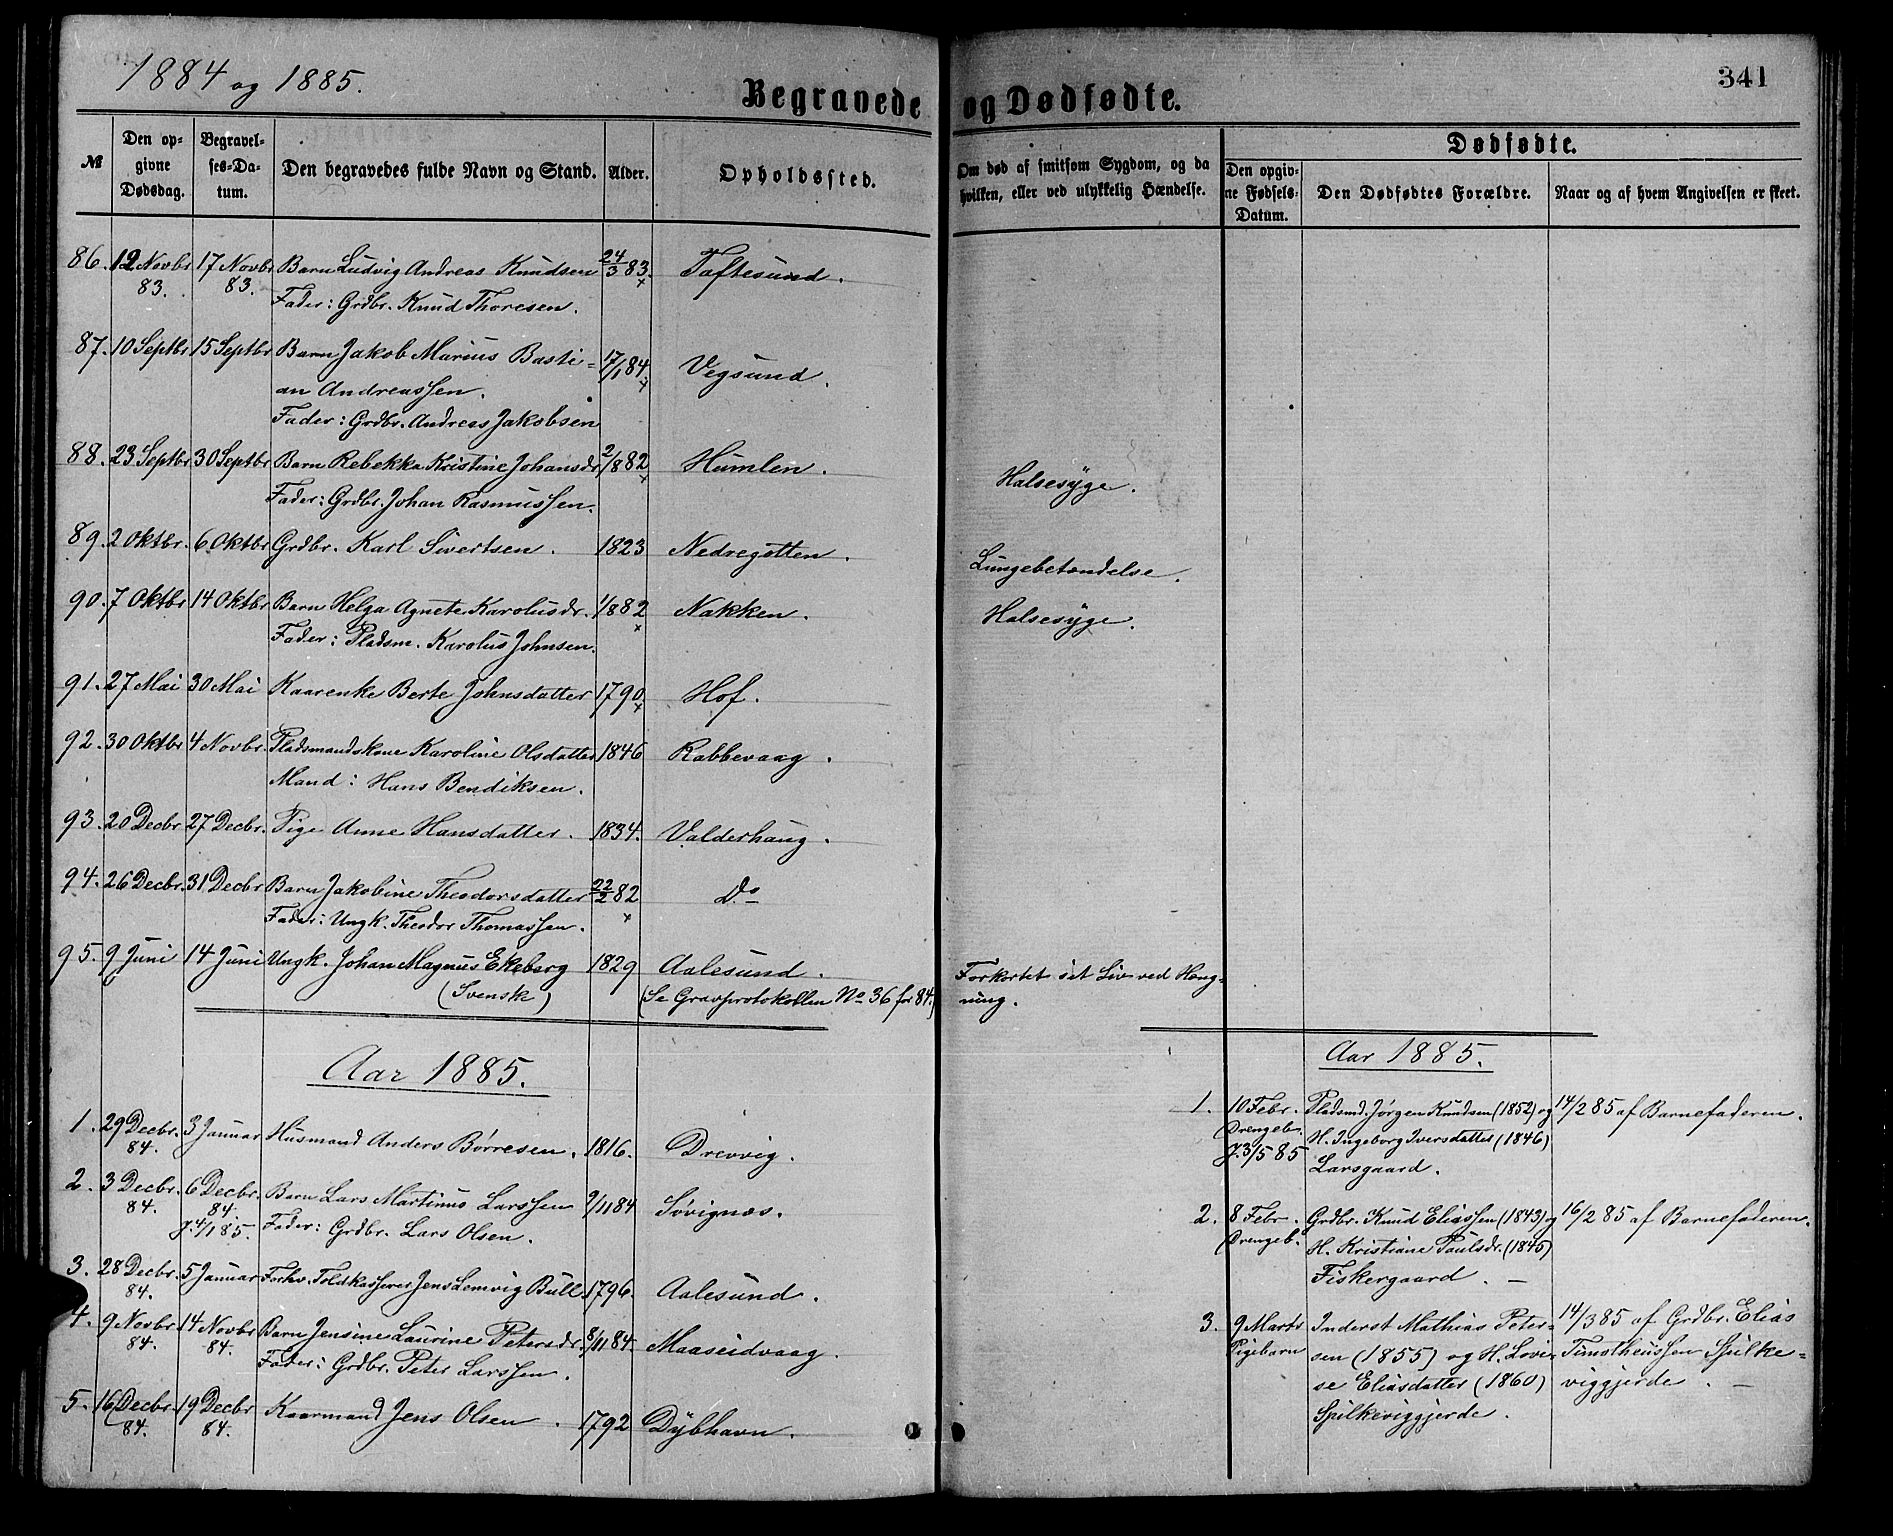 1884 og 1885.
Begravede og Dødfødte.
341
№
Den opgivne Dødsdag.
Begravelses-Datum.
Den begravedes fulde Navn og Stand.
Alder.
Opholdssted.
Om død af smitsom Sygdom, og da hvilken, eller ved ulykkelig Hændelse.
Dødfødte.
Den opgivne Fødsels-Datum.
Den Dødfødtes Forældre.
Naar og af hvem Angivelsen er skeet.
86. 12 Novbr 17 Novbr Barn Ludvig Andreas Knudsen 24/3 83. Toftesund.
83. 83. Fader: Grdbr. Knud Thoresen.
87. 10 Septbr 15 Septbr Barn Jakob Marius Basti- 17/1 84. Vegsund.
an Andreassen.
Fader: Grdbr. Andreas Jakobsen
88. 23 Septbr 30 Septbr Barn Rebekka Kristine Johansdr 2/8 82 Humlen. Halsesyge.
Fader: Grdbr. Johan Rasmussen.
89. 2 Oktbr. 6 Oktbr Grdbr. Karl Sivertsen. 1823 Nedregotten. Lungebetændelse.
90. 7 Oktbr 14 Oktbr Barn Helga Agnete Karolusdr. 1/8 82 Nakken. Halsesyge.
Fader: Pladsm. Karolus Johnsen.
91. 27 Mai 30 Mai Kaarenke Berte Johnsdatter 1790. Hof.
92. 30 Oktbr 4 Novbr. Pladsmandskone Karoline Olsdatter 1846 Rabbevaag.
Mand: Hans Bendiksen.
93. 20 Decbr 27 Decbr. Pige Anne Hansdatter. 1834. Valderhaug.
94. 26 Decbr. 31 Decbr Barn Jakobine Theodorsdatter 22/2 82 Do
Fader: Ungk. Theodor Thomassen.
95. 9 Juni 14 Juni Ungk. Johan Magnus Ekeberg 1829 Aalesund. Forkortet sit Liv ved Hæng-
(Svensk) (Se Gravprotokollen No 36 for 84.) ning.
Aar 1885.
1. 29 Decbr. 3 Januar Husmand Anders Børresen. 1816. Drevvig.
84.
2. 3 Decbr. 6 Decbr. Barn Lars Martinus Larssen 9/11 84 Søvignæs.
84. 84. Fader: Grdbr. Lars Olsen.
J. 4/1 85.
3. 28 Decbr. 5 Januar Forhv. Toldkasserer Jens Lemvig Bull. 1796. Aalesund.
84.
4. 9 Novbr. 14 Novbr Barn Jensine Laurine Petersdr. 8/11 84. Maaseidvaag.
84. 84. Fader: Grdbr. Peter Larssen.
5. 16 Decbr. 19 Decbr Kaarmand Jens Olsen. 1792 Dybhavn.
84. 84.
Aar 1885.
1. 10 Febr. Pladsmd. Jørgen Knudsen (1852) og 14/2 85 af Barnefaderen.
Drengeb. H. Ingeborg Iversdatter (1846)
J. 3/5 85 Larsgaard.
2. 8 Febr. Grdbr. Knud Eliassen (1843) og 16/2 85 af Barnefaderen.
Drengeb. H. Kristiane Paulsdr. (1845)
Fiskergaard.
3. 9 Marts Inderst Mathias Peter- 14/3 85 af Grdbr. Elias
Pigebarn sen (1855) og H. Lovi- Timotheussen Spilke-
se Eliasdatter (1860) viggjerde.
Spilkeviggjerde.